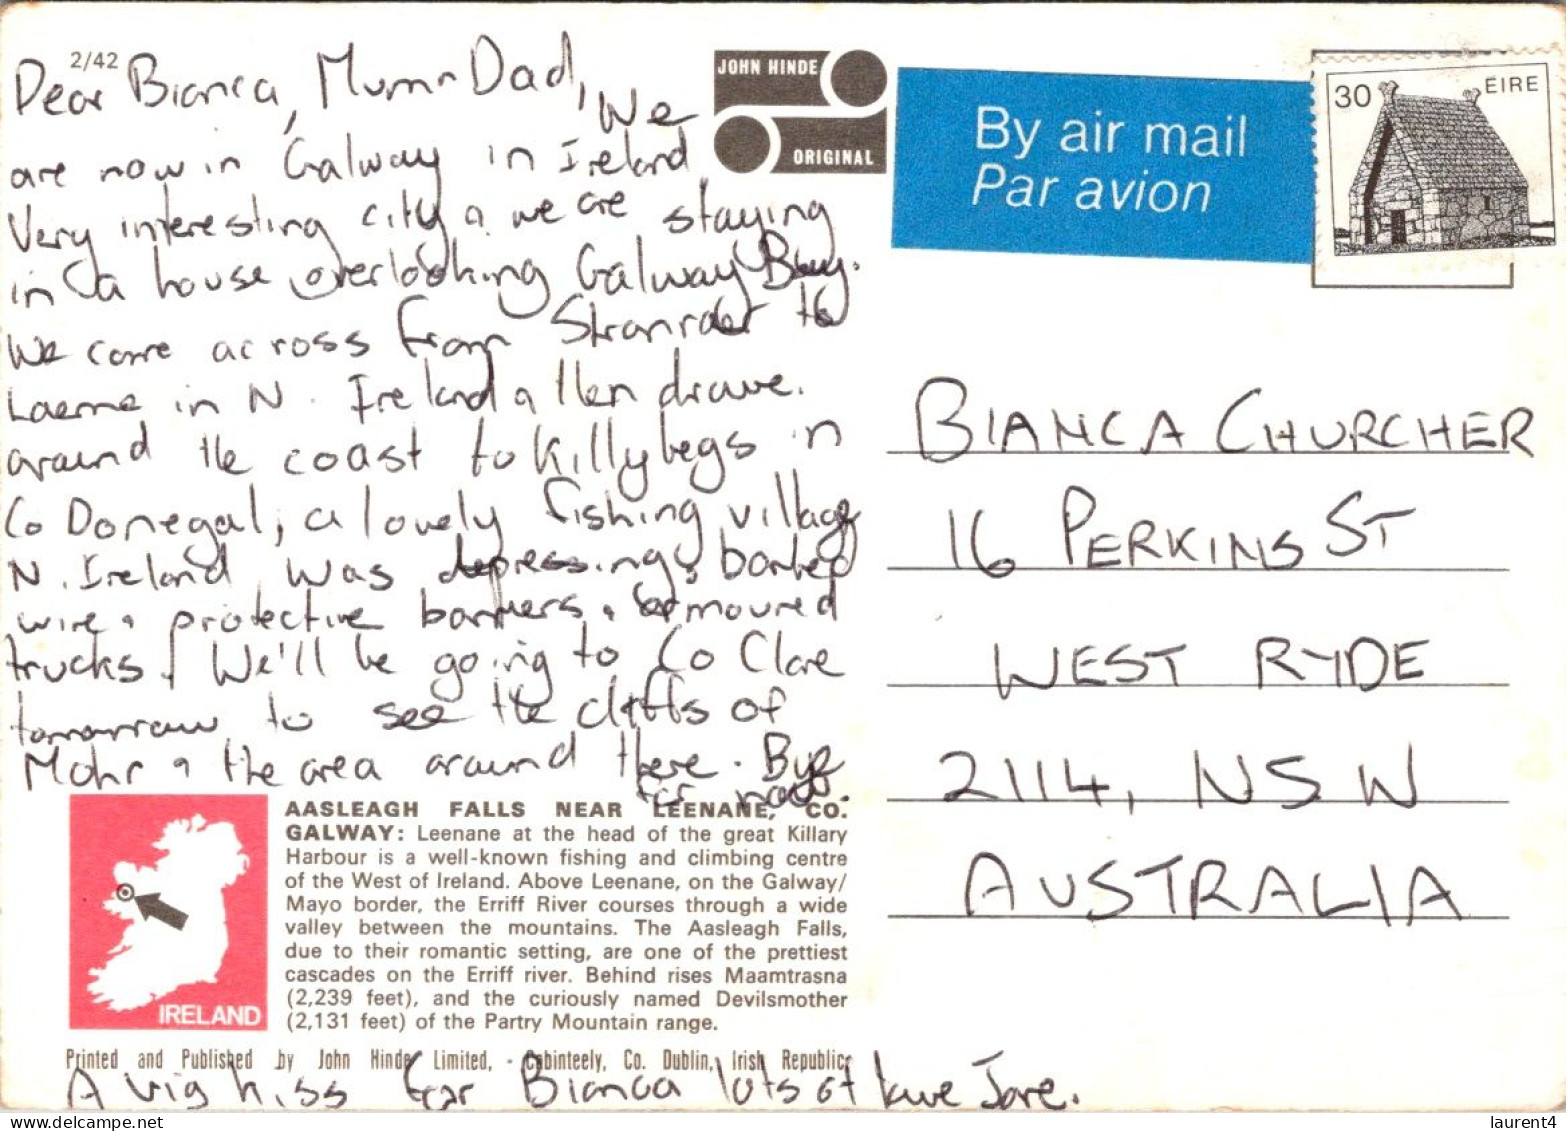 2/42
Dear Bianca, Mum & Dad, We
are now in Galway in Ireland.
Very interesting city & we are staying
in a house overlooking Galway Bay.
We came across from Stranraer to
Laerne in N. Ireland & then drove
around the coast to Killybegs in
Co Donegal, a lovely fishing village
N. Ireland was depressing, barbed
wire & protective barriers & armoured
trucks. We'll be going to Co Clare
tomorrow to see the cliffs of
Mohr & the area around there. Bye
for now.
JOHN HINDE
ORIGINAL
By air mail
Par avion
30 ÉIRE
BIANCA CHURCHER
16 PERKINS ST
WEST RYDE
2114, NSW
AUSTRALIA
AASLEAGH FALLS NEAR LEENANE, CO.
GALWAY: Leenane at the head of the great Killary
Harbour is a well-known fishing and climbing centre
of the West of Ireland. Above Leenane, on the Galway/
Mayo border, the Erriff River courses through a wide
valley between the mountains. The Aasleagh Falls,
due to their romantic setting, are one of the prettiest
cascades on the Erriff river. Behind rises Maamtrasna
(2,239 feet), and the curiously named Devilsmother
(2,131 feet) of the Partry Mountain range.
IRELAND
Printed and Published by John Hinde Limited, - Cabinteely, Co. Dublin, Irish Republic
A big kiss for Bianca lots of love Jane.
laurent4